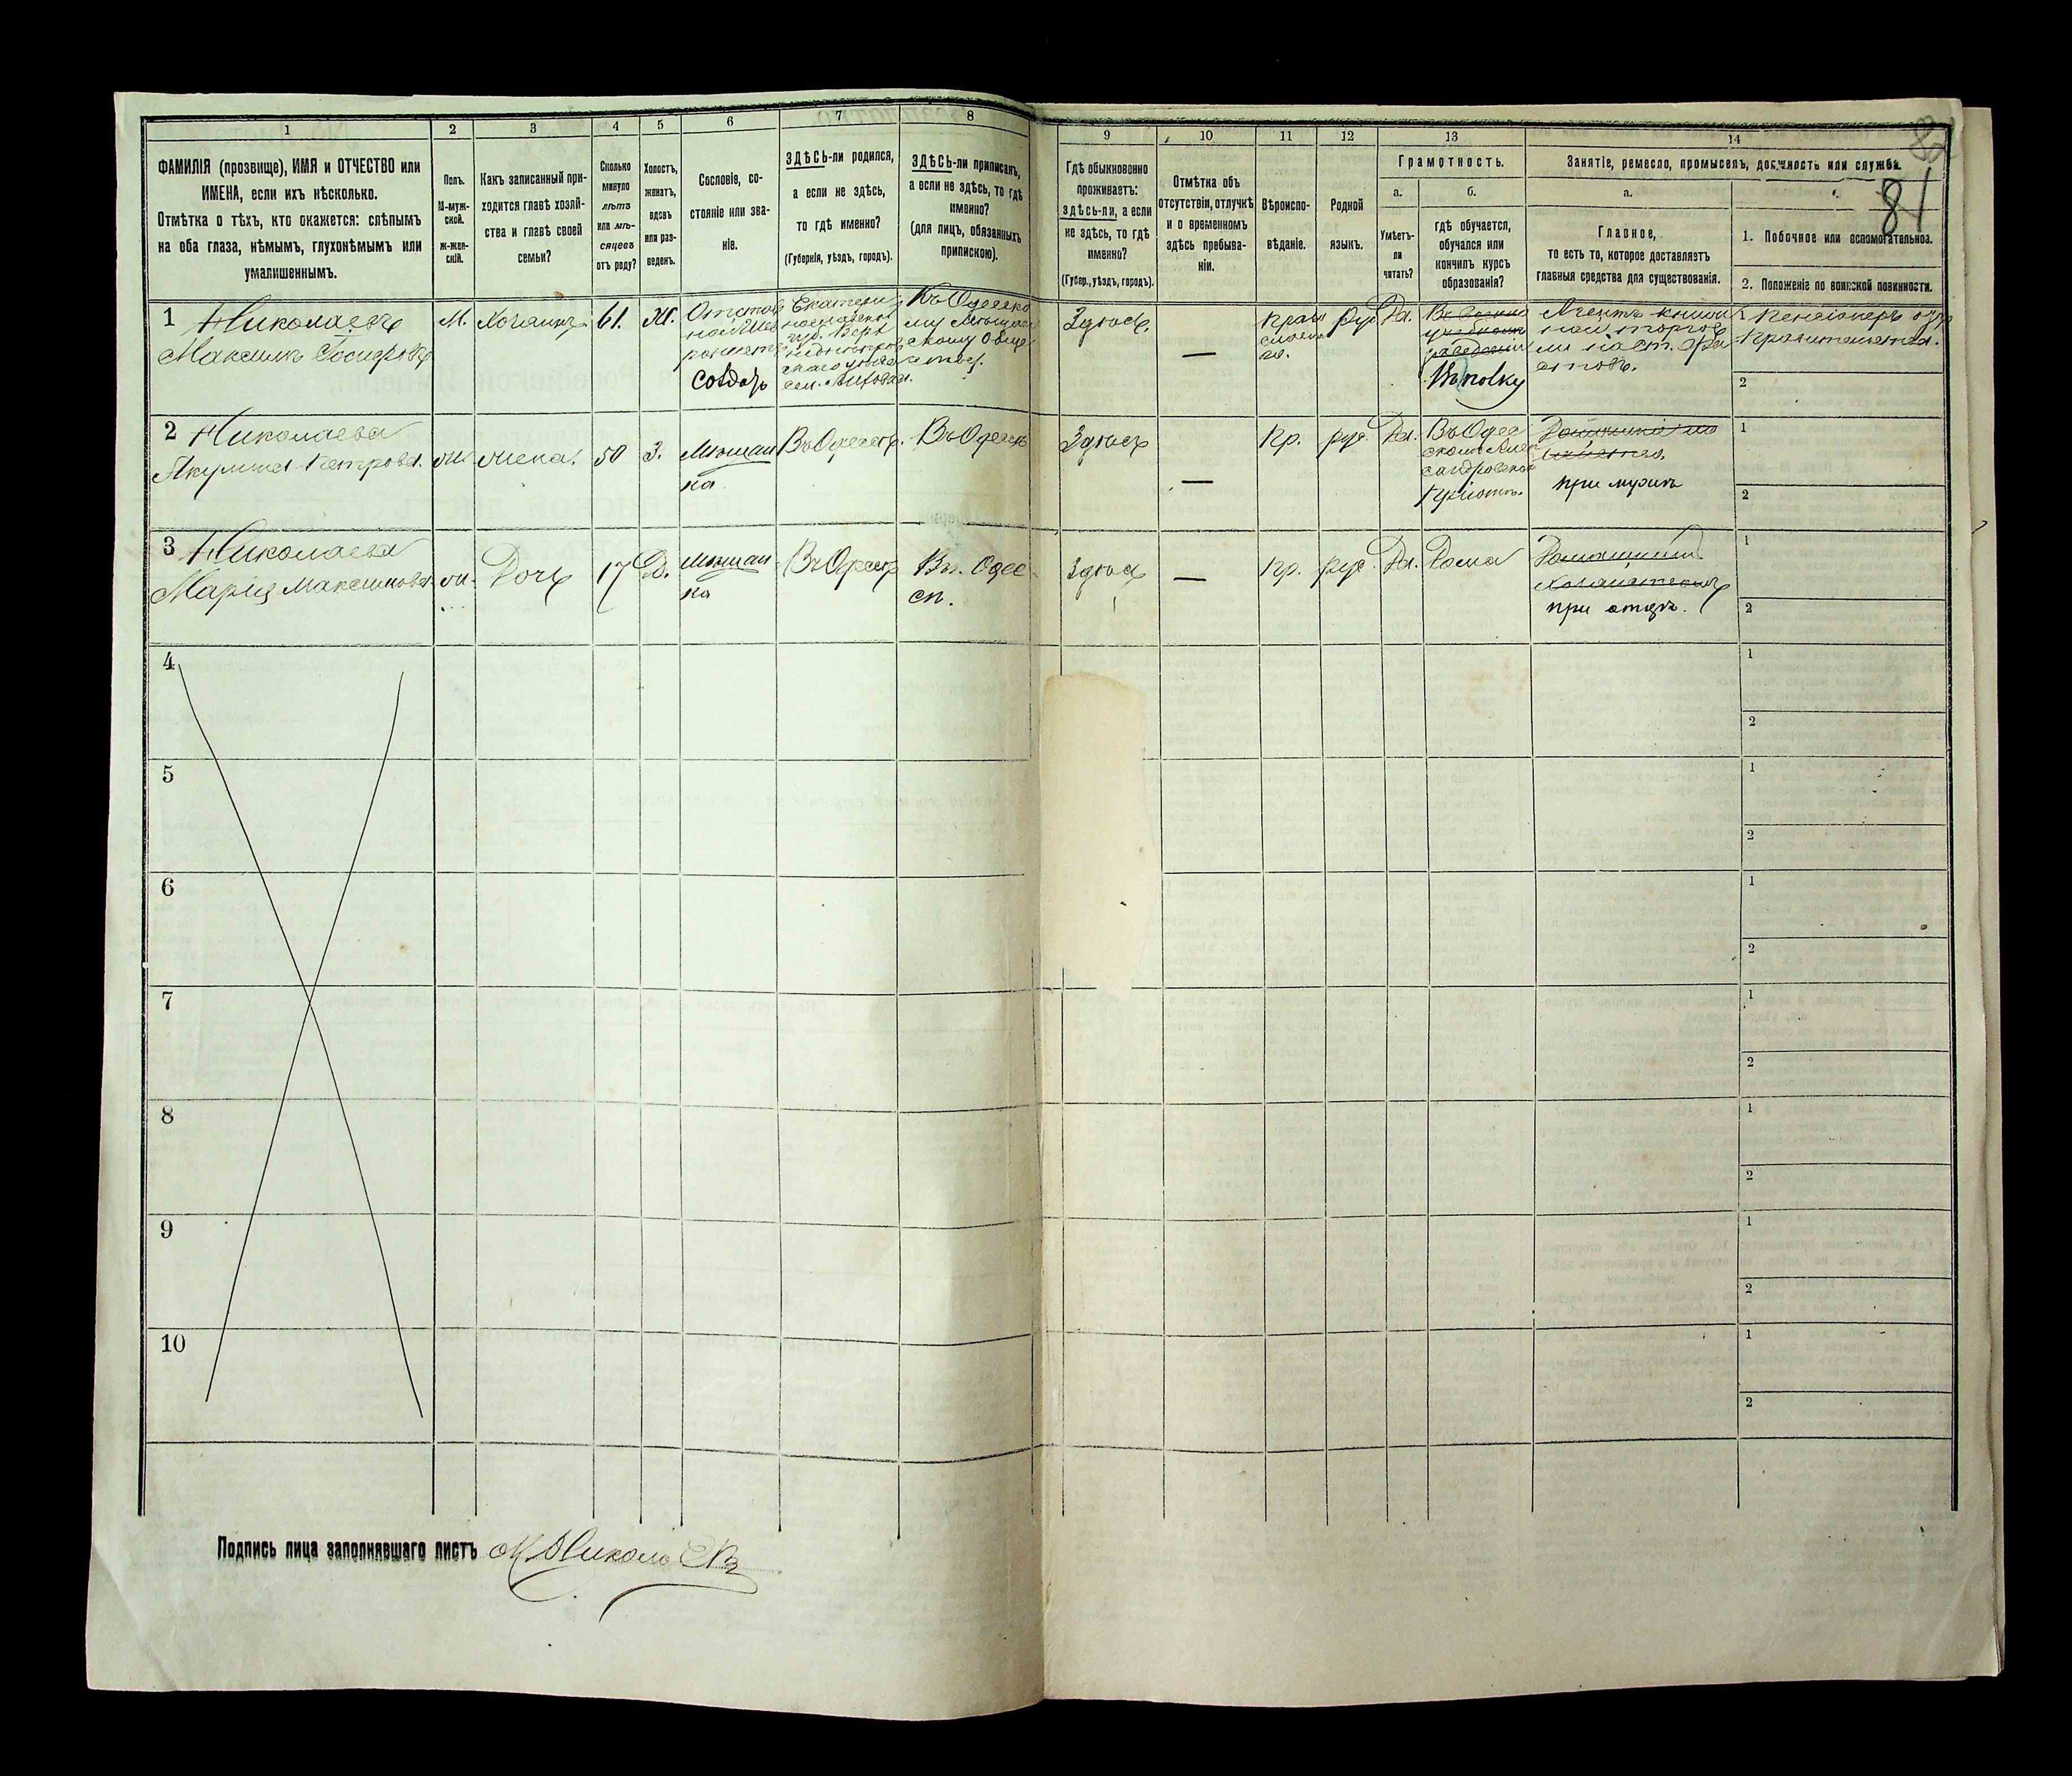 1 2 3 4 5 6 7 8
ФАМИЛІЯ (прозвище), ИМЯ и ОТЧЕСТВО или
ИМЕНА, если ихъ нѣсколько.
Отмѣтка о тѣхъ, кто окажется: слѣпымъ
на оба глаза, нѣмымъ, глухонѣмымъ или
умалишеннымъ.
Полъ.
М-муж-
ской.
Ж-жен-
скій.
Какъ записанный при-
ходится главѣ хозяй-
ства и главѣ своей
семьи?
Сколько
минуло
лѣтъ
или мѣ-
сяцевъ
отъ роду?
Холостъ,
женатъ,
вдовъ
или раз-
веденъ.
Сословіе, со-
стояніе или зва-
ніе.
ЗДѢСЬ-ли родился,
а если не здѣсь,
то гдѣ именно?
(Губернія, уѣздъ, городъ).
ЗДѢСЬ-ли приписанъ,
а если не здѣсь, то гдѣ
именно?
(для лицъ, обязанныхъ
припискою).
9 10 11 12 13 14
Гдѣ обыкновенно
проживаетъ:
здѣсь-ли, а если
не здѣсь, то гдѣ
именно?
(Губер., уѣздъ, городъ).
Отмѣтка объ
отсутствіи, отлучкѣ
и о временномъ
здѣсь пребыва-
ніи.
Вѣроиспо-
вѣданіе.
Родной
языкъ.
Грамотность.
а. б.
Умѣетъ-
ли
читать?
гдѣ обучается,
обучался или
кончилъ курсъ
образованія?
Занятіе, ремесло, промыселъ, должность или служба.
а.
81
Главное,
то есть то, которое доставляетъ
главныя средства для существованія.
1. Побочное или вспомогательное.
2. Положеніе по воинской повинности.
1 Николаевъ
Максимъ
М.
Хозяинъ
61.
Ж.
Отстав
солдатъ
Екатери
губ. Верх
Къ Одесско
му Мѣщан
скому Обще
ству.
Здѣсь.
—
Прав
слав
Рус
Да.
Въ полку
Агентъ книж
ной торгов
ли на ст.
1 Пенсіонеръ отъ
Правительства.
2
2 Николаева
Акулина Петрова.
Ж
Жена.
50
З.
Мѣщан
ка
Въ Одессѣ.
Въ Одессѣ
Здѣсь
—
Пр.
рус.
Да.
Въ Одес
ском Алек
сандровском
Пріютѣ.
при мужѣ
1
2
3 Николаева
Марія Максимова
Ж.
Дочь
17
Д.
Мѣщан
ка
Въ Одессѣ
Въ Одес
сѣ.
Здѣсь
—
Пр.
рус.
Да.
Дома
Домашнимъ
Хозяйствомъ
при отцѣ.
1
2
4
1
2
5
1
2
6
1
2
7
1
2
8
1
2
9
1
2
10
1
2
Подпись лица заполнявшаго листъ М. Николаевъ